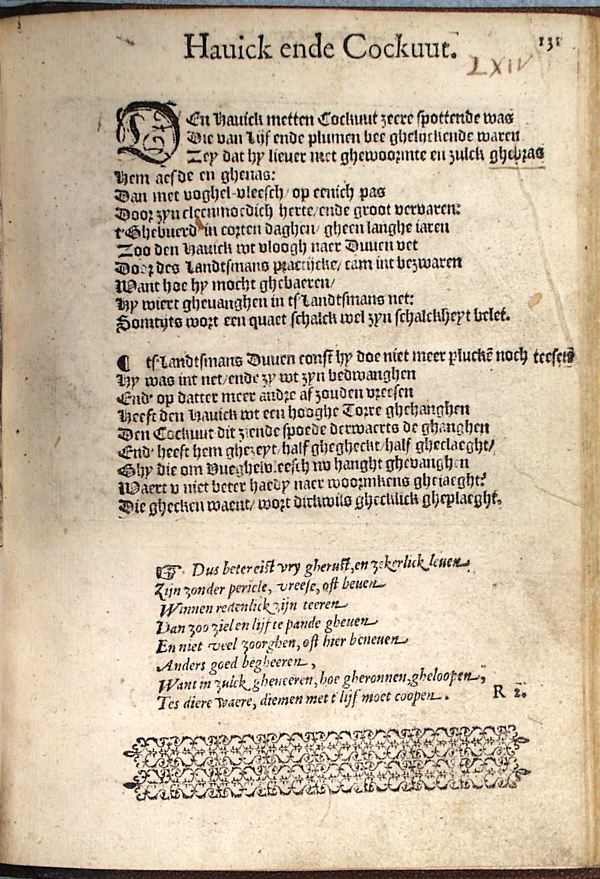 Hauick ende Cockuut.
131
LXIV
EEn Hauick metten Cockuut zeere spottende was
Die van Lijf ende plumen bee ghelijckende waren
Zey dat hy liever met ghewoormte en zulck ghebras
Hem aesde en ghenas:
Dan met voghel-vleesch/ op eenich pas
Door zyn cleenmoedich herte/ ende groot vervaren:
t'Ghebuerd' in corten daghen/ gheen langhe iaren
Zoo den Hauick wt vloogh naer Duven vet
Door des Landtsmans practijcke/ cam int bezwaren
Want hoe hy mocht ghebaeren/
Hy wiert ghevanghen in ts Landtsmans net:
Somtijts wort een quaet schalck wel zyn schalckheyt belet.
¶ ts Landtsmans Duven const hy doe niet meer plucken noch teesen
Hy was int net/ ende zy wt zyn bedwanghen
End' op datter meer andre af zouden vreesen
Heeft den Hauick wt een hooghe Torre ghehanghen
Den Cockuut dit ziende spoede derwaerts de ghanghen
End' heeft hem ghezeyt/ half ghegheckt/ half gheclaeght/
Ghy die om Vueghelvleesch nu hanght ghevanghen
Waert u niet beter haedy naer woormkens gheiaeght?
Die ghecken waent/ wort dickwils ghecklick gheplaeght.
☞ Dus beter eist vry gherust, en zekerlick leven
Zijn zonder pericle, vreese, oft beven
Winnen redenlick zijn teeren
Dan zoo ziel en lijf te pande gheven
En niet veel zoorghen, oft hier beneven
Anders goed begheeren,
Want in zulck gheneeren, hoe gheronnen, gheloopen,
Tes diere waere, diemen met t'lijf moet coopen.
R 2.